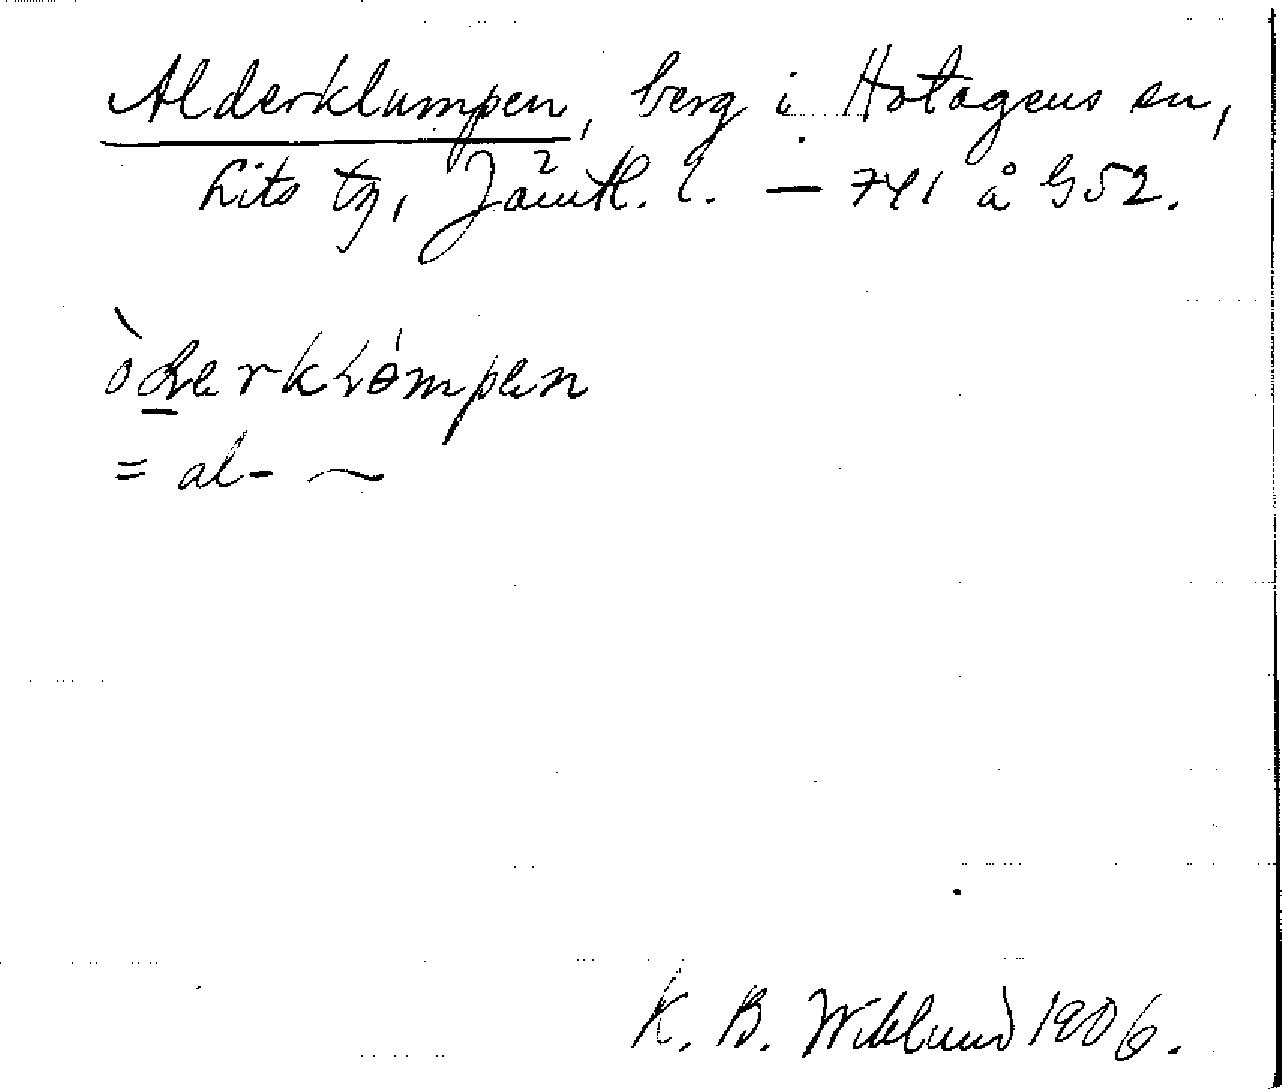 Alderklumpen, berg i Hotagens sn,
Lits tg, Jämtl. l. — 741 å G52.
= al- ~
K. B. Wiklund 1906.